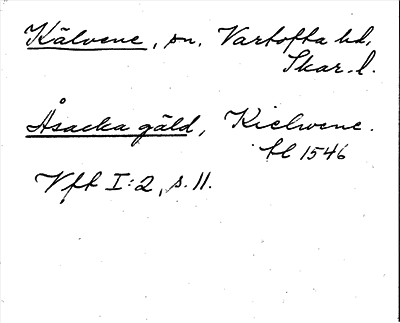 Kälvene, sn. Vartofta hd,
Skar. l.
Åsacka gäld, Kielwene.
tl 1546
Vft I:2, s. 11.